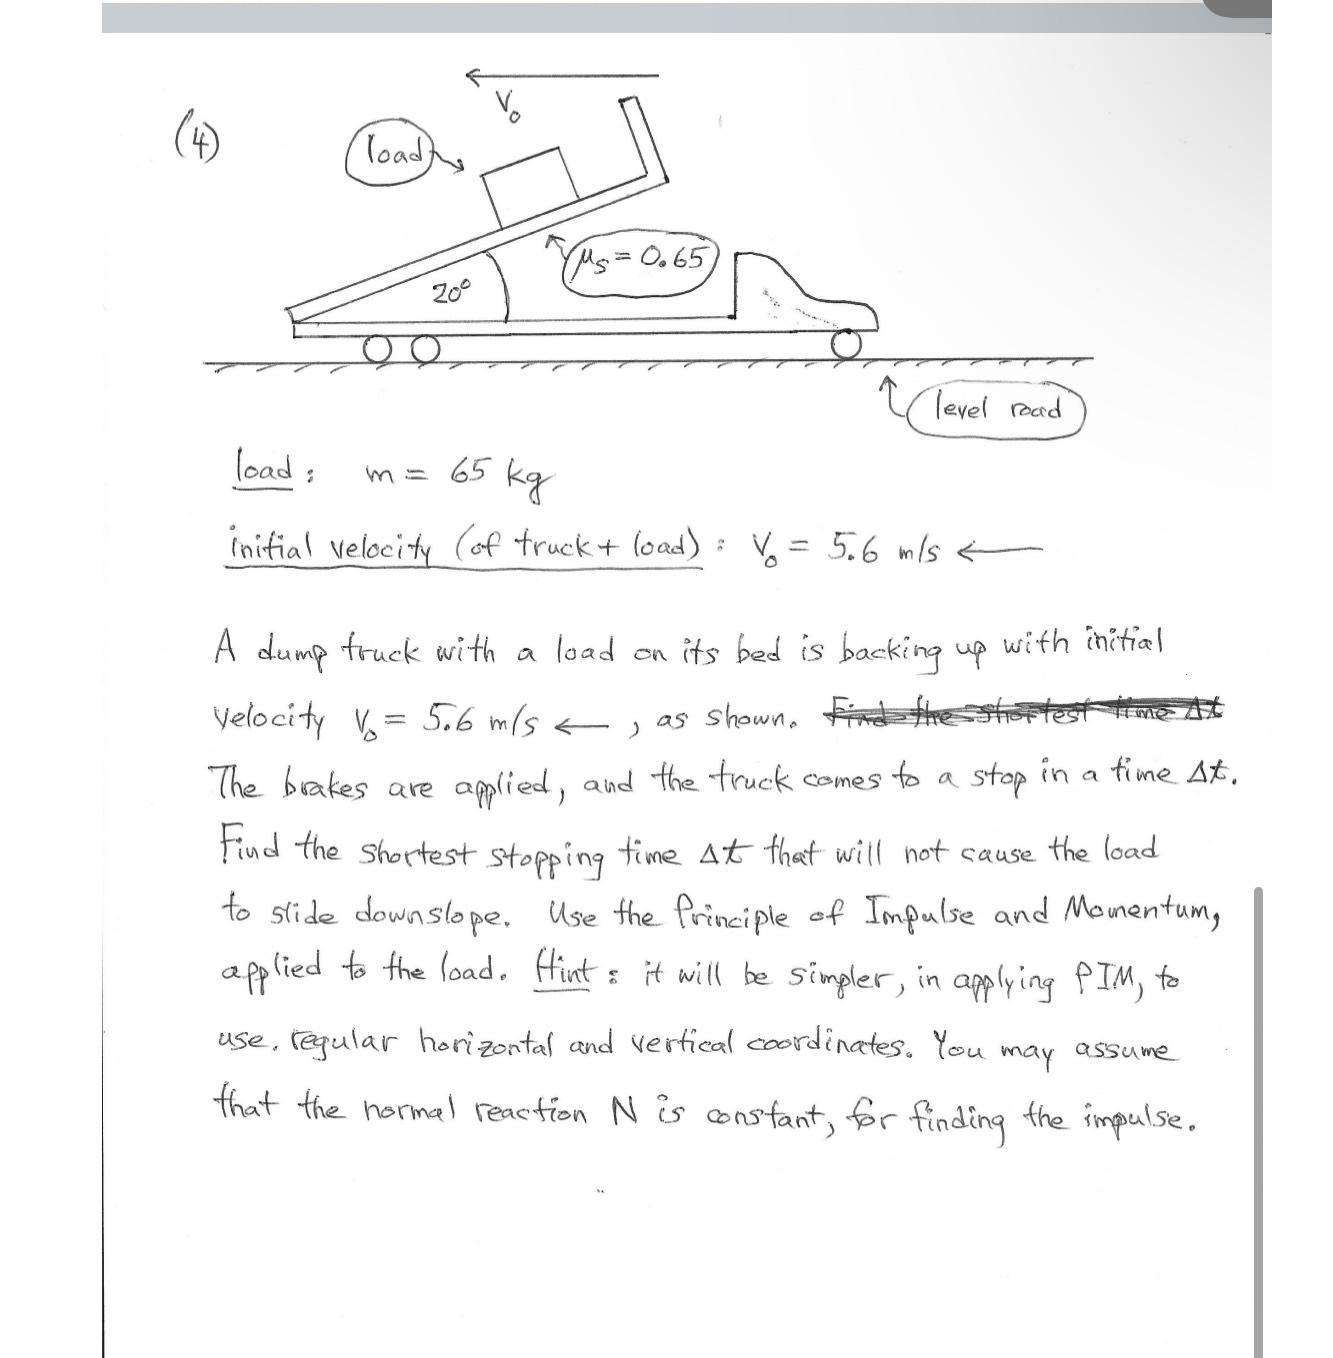 (4)
V₀
load
μs = 0.65
20°
level road
load : m = 65 kg
initial velocity (of truck + load) : V₀ = 5.6 m/s ←
A dump truck with a load on its bed is backing up with initial
velocity V₀ = 5.6 m/s ← , as shown. Find the shortest time Δt
The brakes are applied, and the truck comes to a stop in a time Δt.
Find the shortest stopping time Δt that will not cause the load
to slide downslope. Use the Principle of Impulse and Momentum,
applied to the load. Hint : it will be simpler, in applying PIM, to
use regular horizontal and vertical coordinates. You may assume
that the normal reaction N is constant, for finding the impulse.